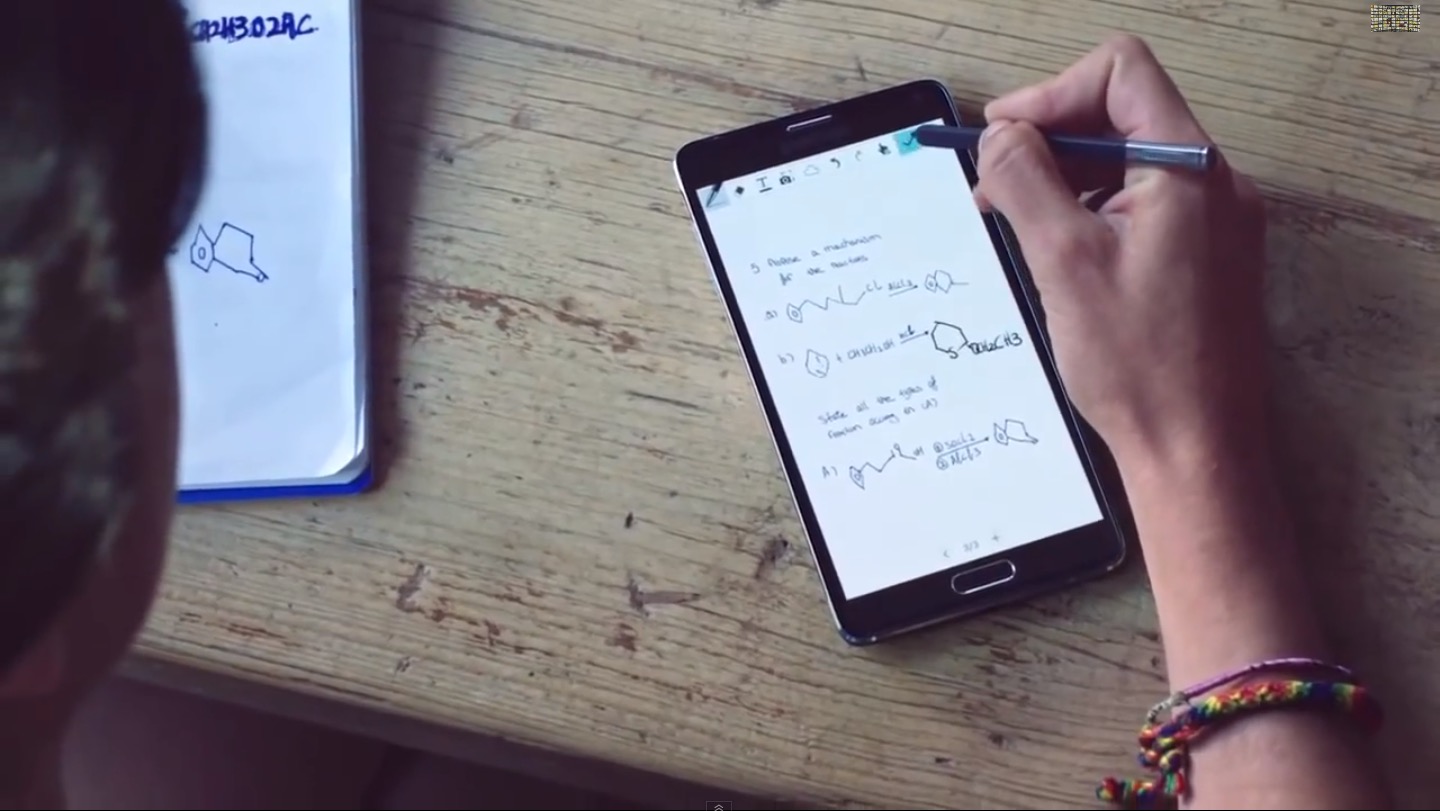 CH2H3O2AC
T
5 Propose a mechanism
for the reactions
a) CL AlCl3
b) + CH3CH2OH OCH2CH3
State all the types of
reaction occuring in (A)
A) OH ① SOCl2
② AlCl3
3/3